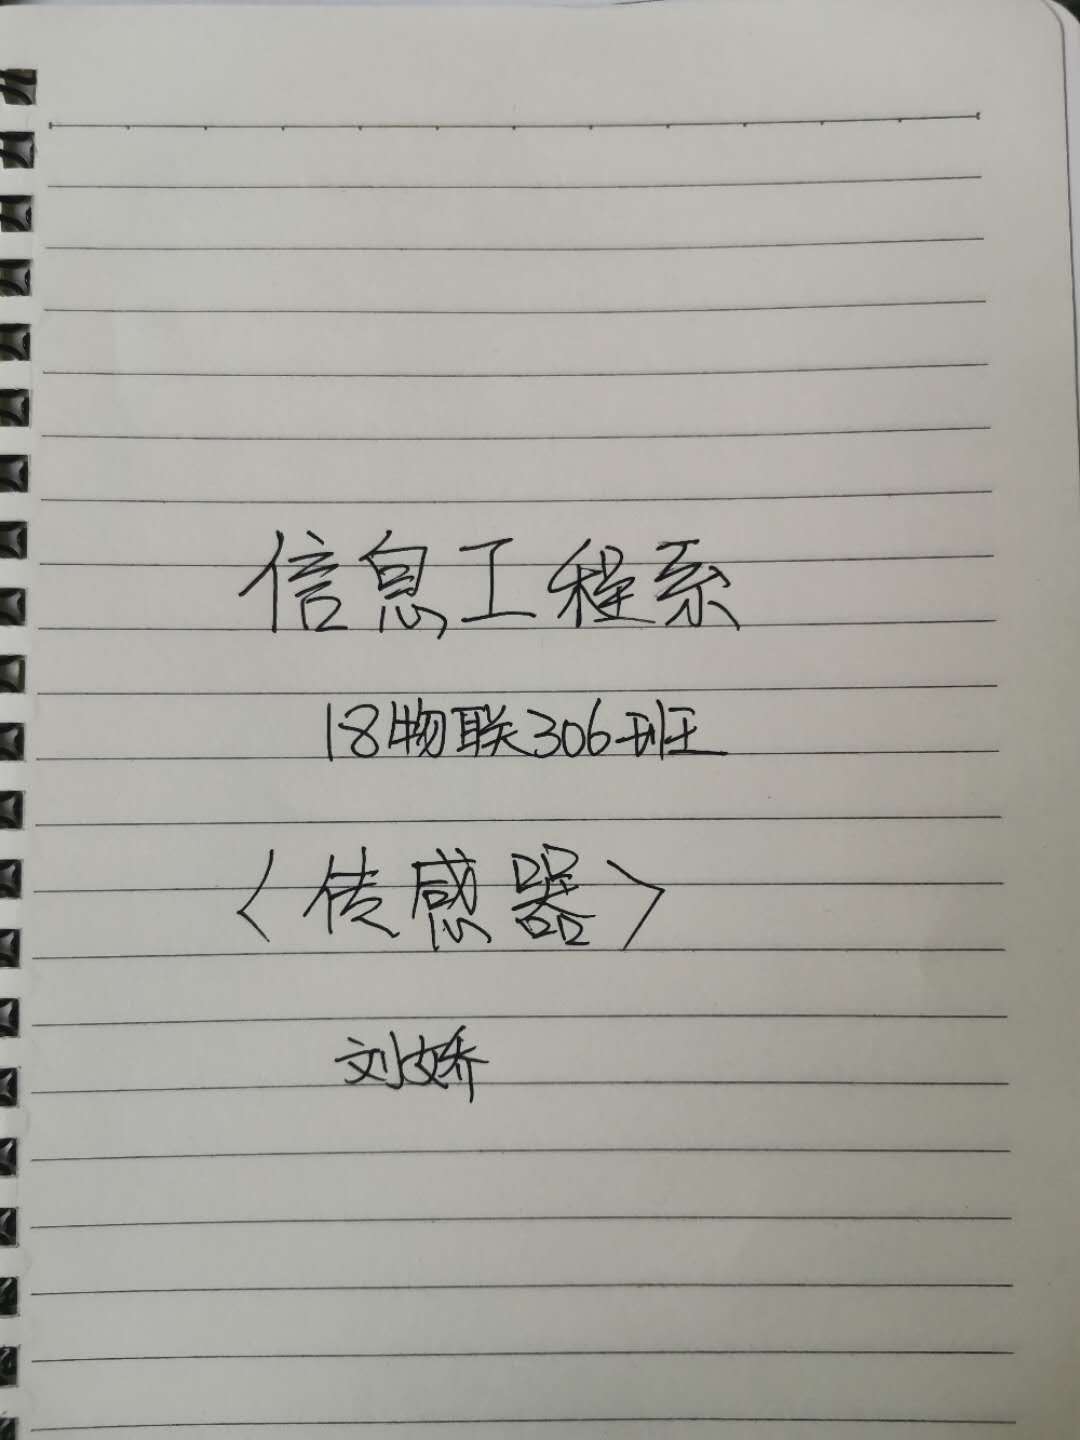 信息工程系
18物联306班
〈传感器〉
刘娇